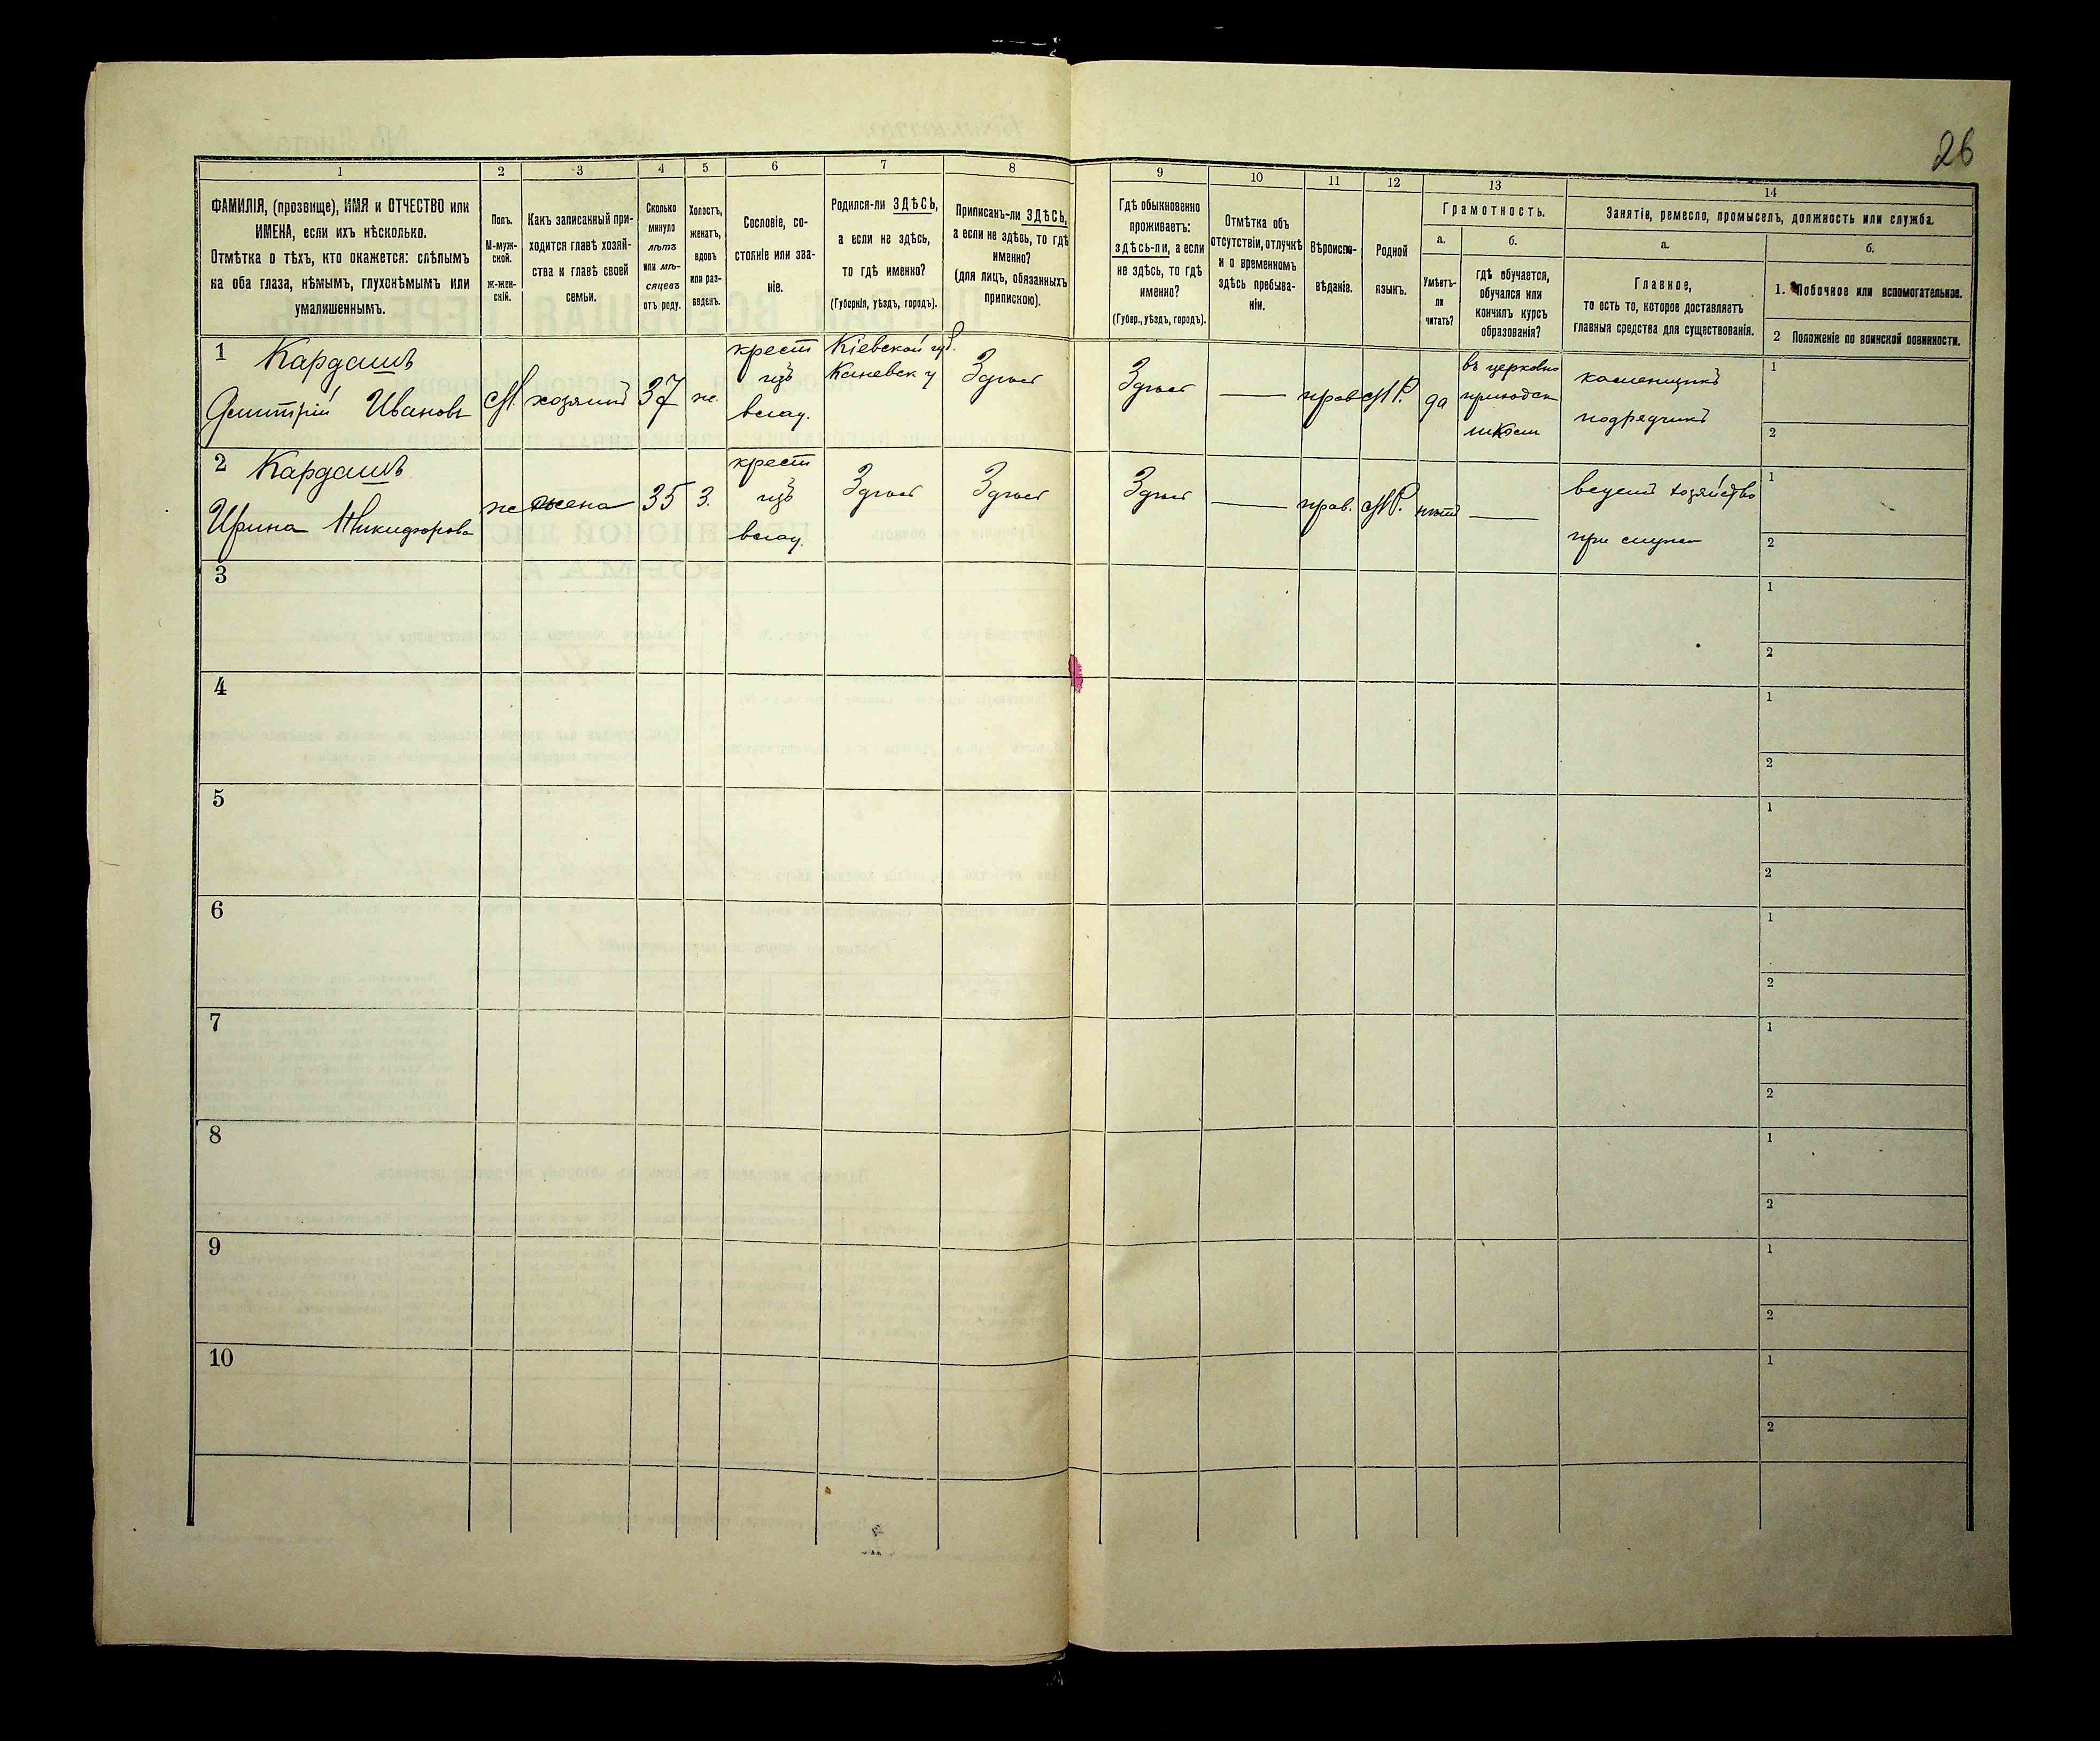 26
1 2 3 4 5 6 7 8 9 10 11 12 13 14
ФАМИЛІЯ, (прозвище), ИМЯ и ОТЧЕСТВО или
ИМЕНА, если ихъ нѣсколько.
Отмѣтка о тѣхъ, кто окажется: слѣпымъ
на оба глаза, нѣмымъ, глухонѣмымъ или
умалишеннымъ.
Полъ.
М-муж-
ской.
ж-жен-
скій.
Какъ записанный при-
ходится главѣ хозяй-
ства и главѣ своей
семьи.
Сколько
минуло
лѣтъ
или мѣ-
сяцевъ
отъ роду.
Холостъ,
женатъ,
вдовъ
или раз-
веденъ.
Сословіе, со-
стояніе или зва-
ніе.
Родился-ли ЗДѢСЬ,
а если не здѣсь,
то гдѣ именно?
(Губернія, уѣздъ, городъ).
Приписанъ-ли ЗДѢСЬ,
а если не здѣсь, то гдѣ
именно?
(для лицъ, обязанныхъ
припискою).
Гдѣ обыкновенно
проживаетъ:
здѣсь-ли, а если
не здѣсь, то гдѣ
именно?
(Губер., уѣздъ, городъ).
Отмѣтка объ
отсутствіи, отлучкѣ
и о временномъ
здѣсь пребыва-
ніи.
Вѣроиспо-
вѣданіе.
Родной
языкъ.
Грамотность.
а.
Умѣетъ-
ли
читать?
б.
гдѣ обучается,
обучался или
кончилъ курсъ
образованія?
Занятіе, ремесло, промыселъ, должность или служба.
а.
Главное,
то есть то, которое доставляетъ
главныя средства для существованія.
б.
1. Побочное или вспомогательное.
2 Положеніе по воинской повинности.
1 Кардашъ
Дмитрій Ивановъ
М
хозяинъ
37
ж.
крест
изъ
влад.
Кіевской губ.
Каневск у
Здѣсь
Здѣсь
—
прав
М Р.
да
въ церковно
приходск
школѣ
каменщикъ
подрядчикъ
1
2
2 Кардашъ
Ирина Никифорова
ж
жена
35
З.
крест
изъ
влад.
Здѣсь
Здѣсь
Здѣсь
—
прав.
М Р.
нѣтъ
—
ведетъ хозяйство
при
1
2
3
1
2
4
1
2
5
1
2
6
1
2
7
1
2
8
1
2
9
1
2
10
1
2